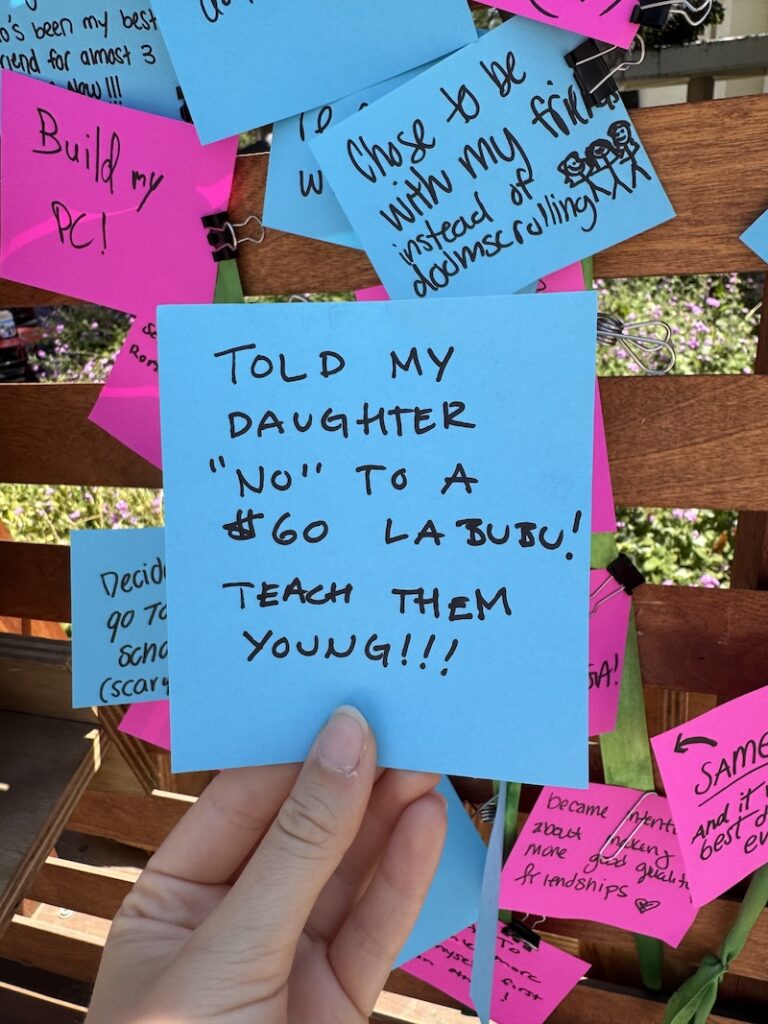 been my best
friend for almost 3
now!!!
Build my
PC!
Chose to be
with my
instead of
doomscrolling
TOLD MY
DAUGHTER
"NO" TO A
$60 LABUBU!
TEACH THEM
YOUNG!!!
go to
(scary
SAME
And it
best
became
about making
more good
friendships
more
first
!